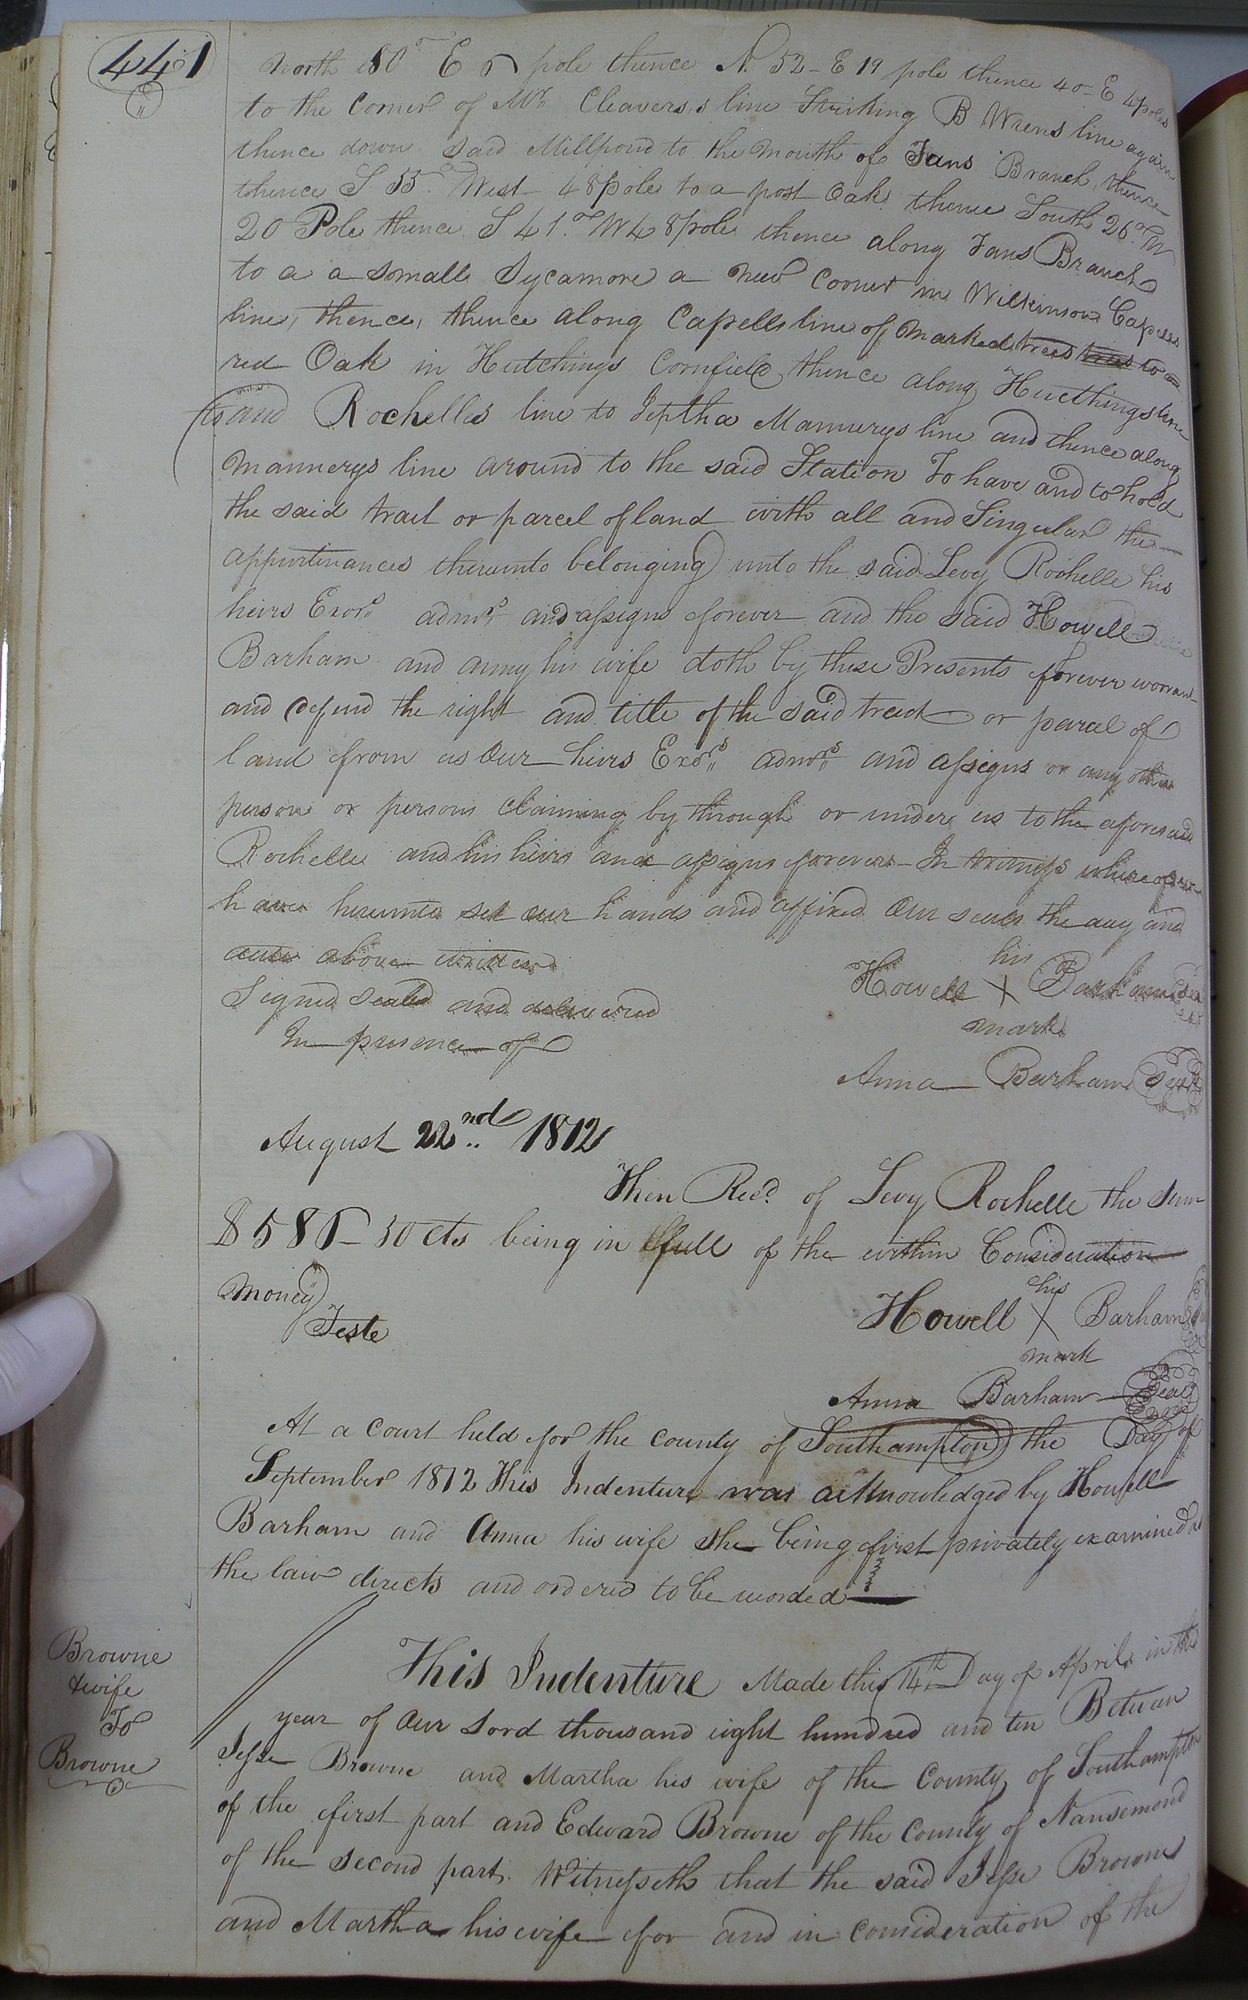 441
north 80° E 6 pole thence N. 52 - E 19 pole thence 40 - E 4 poles
to the Corner of Mr. Cleavers,s line Striking B Wrens line again
thence down said Millpond to the mouth of Tans Branch, thence
thence S 55.° West 48 poles to a post Oak thence South 26° W
20 Pole thence S 41.° W 48 pole thence along Tans Branch
to a a small Sycamore a new Corner in Wilkinson Capells
line, thence, thence along Capells line of marked trees to a
red Oak in Hutchings Cornfield, thence along Hutchings line
to and Rochelles line to Jeptha Mannerys line and thence along
Mannerys line around to the said Station To have and to hold
the said tract or parcel of land with all and Singular the
appurtinances thereunto belonging unto the said Levy Rochelle his
heirs Exors admrs and assigns forever and the said Howell
Barham and anny his wife doth by these Presents forever warrant
and defend the right and title of the said tract or parcel of
land from us Our heirs Exors admrs and assigns or any other
person or persons claiming by through or under us to the aforesaid
Rochelle and his heirs and assigns forever - In witness whereof we
have hereunto set our hands and affixed Our seals the day and
above written
Signed sealed and delivered
In presence of
his
Howell X Barham
mark
Anna Barham Seal
August 22nd 1812
Then Recd. of Levy Rochelle the Sum
$ 585 - 50 cts being in full of the within Consideration
money
Teste
his
Howell X Barham
mark
Anna Barham Seal
At a Court held for the county of Southampton the Day of
September 1812 This Indenture was acknowledged by Howell
Barham and Anna his wife she being first privately examined as
the law directs and ordered to be recorded
Browne
& wife
To
Browne
This Indenture Made this 14th Day of April, in the
year of Our Lord thousand eight hundred and ten Between
Jesse Browne and Martha his wife of the County of Southampton
of the first part and Edward Browne of the County of Nansemond
of the second part. Witnesseth that the said Jesse Browne
and Martha his wife for and in consideration of the